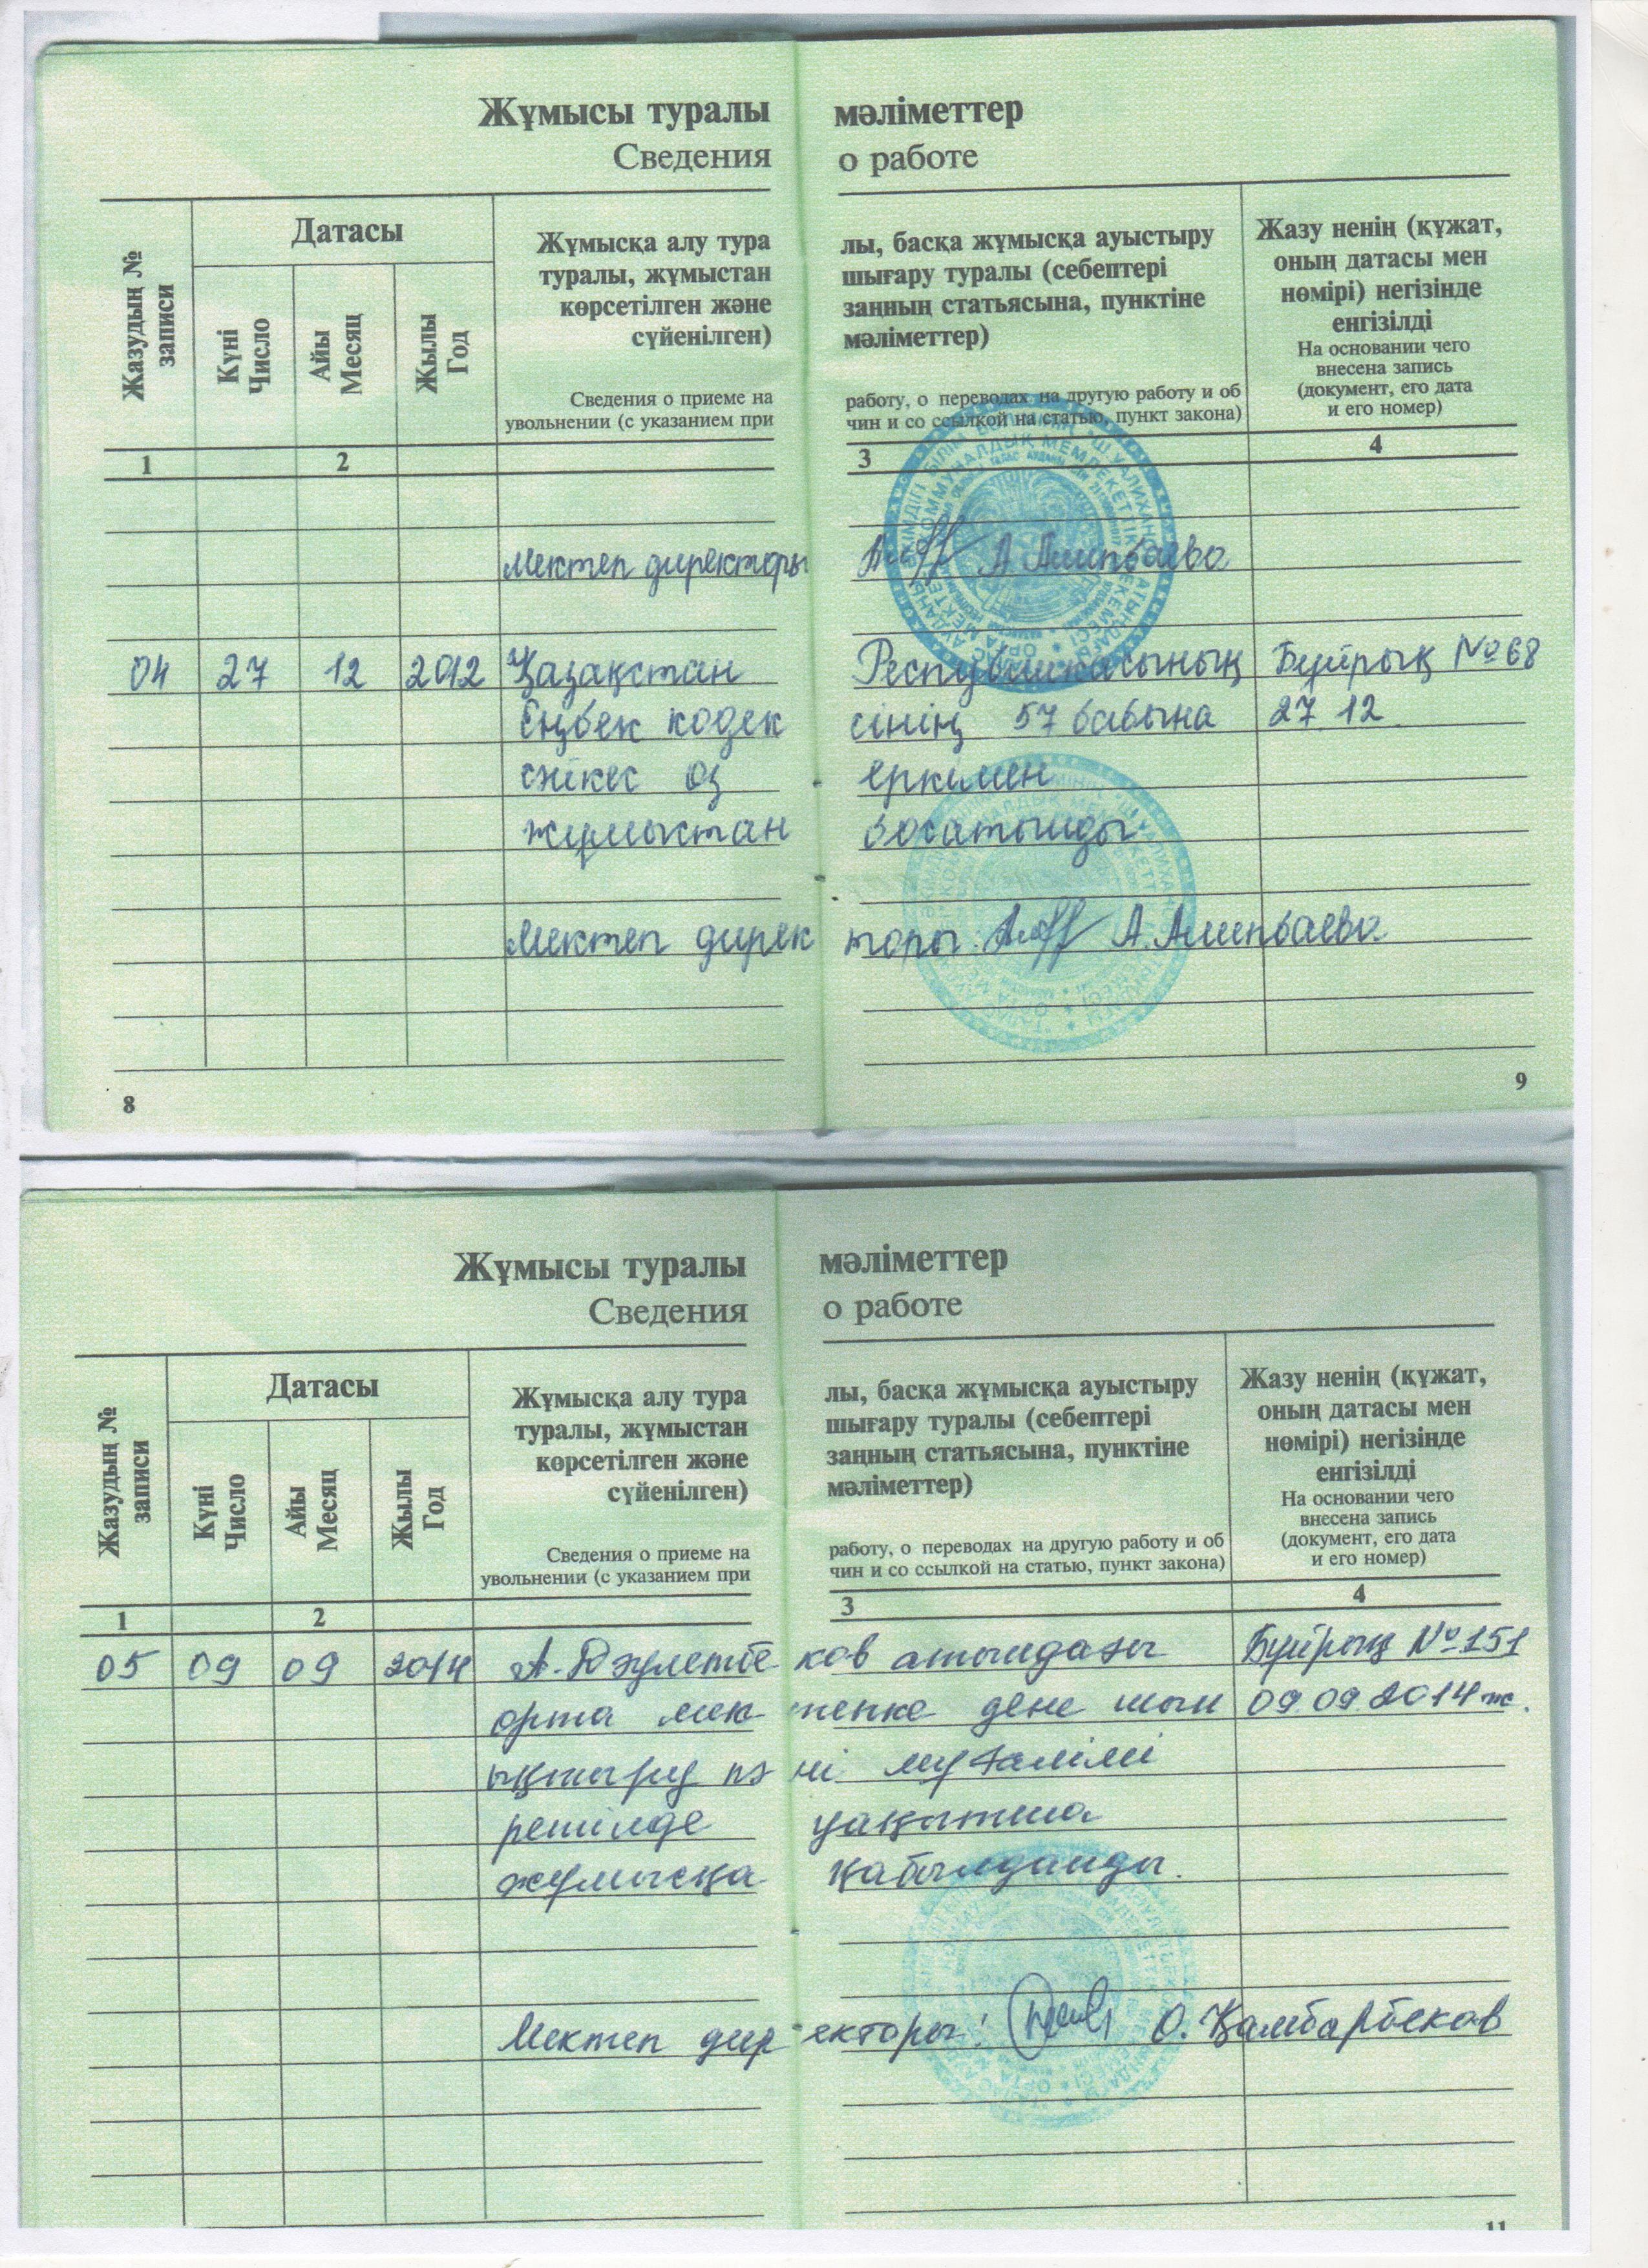 Жұмысы туралы мәліметтер
Сведения о работе
Жазудың №
записи
Датасы
Күні
Число
Айы
Месяц
Жылы
Год
Жұмысқа алу тура лы, басқа жұмысқа ауыстыру
туралы, жұмыстан шығару туралы (себептері
көрсетілген және заңның статьясына, пунктіне
сүйенілген) мәліметтер)
Сведения о приеме на работу, о переводах на другую работу и об
увольнении (с указанием при чин и со ссылкой на статью, пункт закона)
Жазу ненің (құжат,
оның датасы мен
нөмірі) негізінде
енгізілді
На основании чего
внесена запись
(документ, его дата
и его номер)
1 2 3 4
Мектеп директоры А Алипбаева
04 27 12 2012 Қазақстан Республикасының Бұйрық №68
Еңбек кодек сінің 57 бабына 27.12.
сәйкес өз еркімен
жұмыстан босатылды
Мектеп дирек торы. А. Алипбаева
8 9
Жұмысы туралы мәліметтер
Сведения о работе
Жазудың №
записи
Датасы
Күні
Число
Айы
Месяц
Жылы
Год
Жұмысқа алу тура лы, басқа жұмысқа ауыстыру
туралы, жұмыстан шығару туралы (себептері
көрсетілген және заңның статьясына, пунктіне
сүйенілген) мәліметтер)
Сведения о приеме на работу, о переводах на другую работу и об
увольнении (с указанием при чин и со ссылкой на статью, пункт закона)
Жазу ненің (құжат,
оның датасы мен
нөмірі) негізінде
енгізілді
На основании чего
внесена запись
(документ, его дата
и его номер)
1 2 3 4
05 09 09 2014 А. Дәулетбе ков атындағы Бұйрық №151
орта мек тепке дене шын 09.09.2014 ж.
ықтыру пә ні мұғалімі
ретінде уақытша
жұмысқа қабылданды.
Мектеп дир екторы: О. Қамбарбеков
11